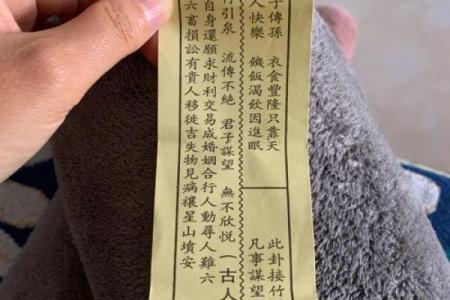 子傳孫 衣食豐隆只靠天
人快樂 饑飯渴飲困進眠
此卦接竹
凡事謀望
引泉 流傳不絕 君子謀望 無不欣悦(古人
自身還願求財利交易成婚姻合行人動尋人難六
六畜損訟有貴人移徙吉失物見病禳星山墳安